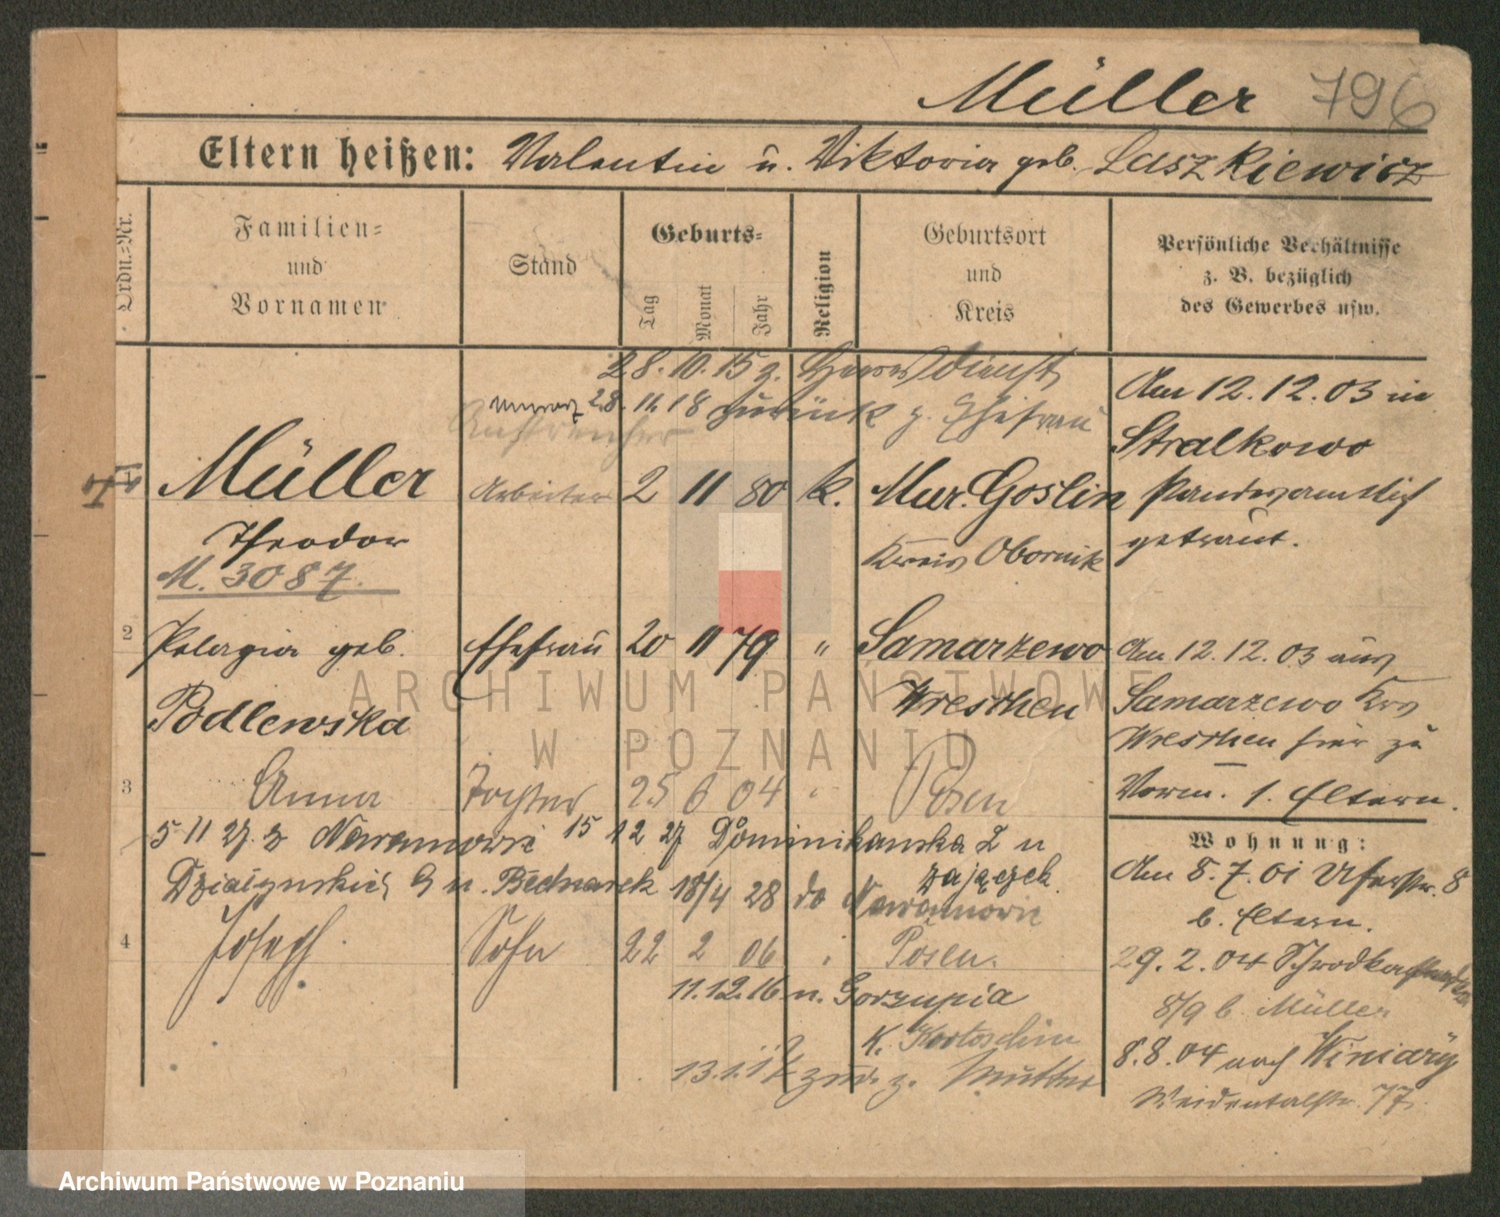 Müller 796
Eltern heißen: Valentin u. Viktoria geb. Laszkiewicz
Ordn.-Nr.
Familien- und Vornamen
Stand
Geburts-
Tag Monat Jahr
Religion
Geburtsort und Kreis
Persönliche Verhältnisse
z. B. bezüglich
des Gewerbes usw.
28. 10. 15 z. Heeresdienst
28. 11. 18 zurück z. Ehefrau
Anstreicher
Müller Arbeiter 2 11 80 k. Mur. Goslin
Theodor Kreis Obornik
M. 3087
Am 12.12.03 in
Stralkowo
standesamtlich
getraut.
2 Pelagia geb. Ehefrau 20 11 79 " Samarzewo
Podlewska Wreschen
Am 12.12.03 aus
Samarzewo Krs
Wreschen hier zu
Vorm. 1. Eltern.
3 Anna Tochter 25 6 04 " Posen
5 11 27 z 15 12 27 Dominikanska 2 u
Zajączek.
Działyńskich 9 u. Bednarek 18/4 28 do
4 Joseph Sohn 22 2 06 " Posen.
11.12.16 n. Gorzupia
K. Krotoschin
13.1.17 zur. z. Mutter
Wohnung:
Am 8.7.01 Uferstr. 8
b. Eltern.
29.2.04
8/9 b. Müller
8.8.04 nach Winiary
Weidentalstr. 77.
ARCHIWUM PAŃSTWOWE
W POZNANIU
Archiwum Państwowe w Poznaniu